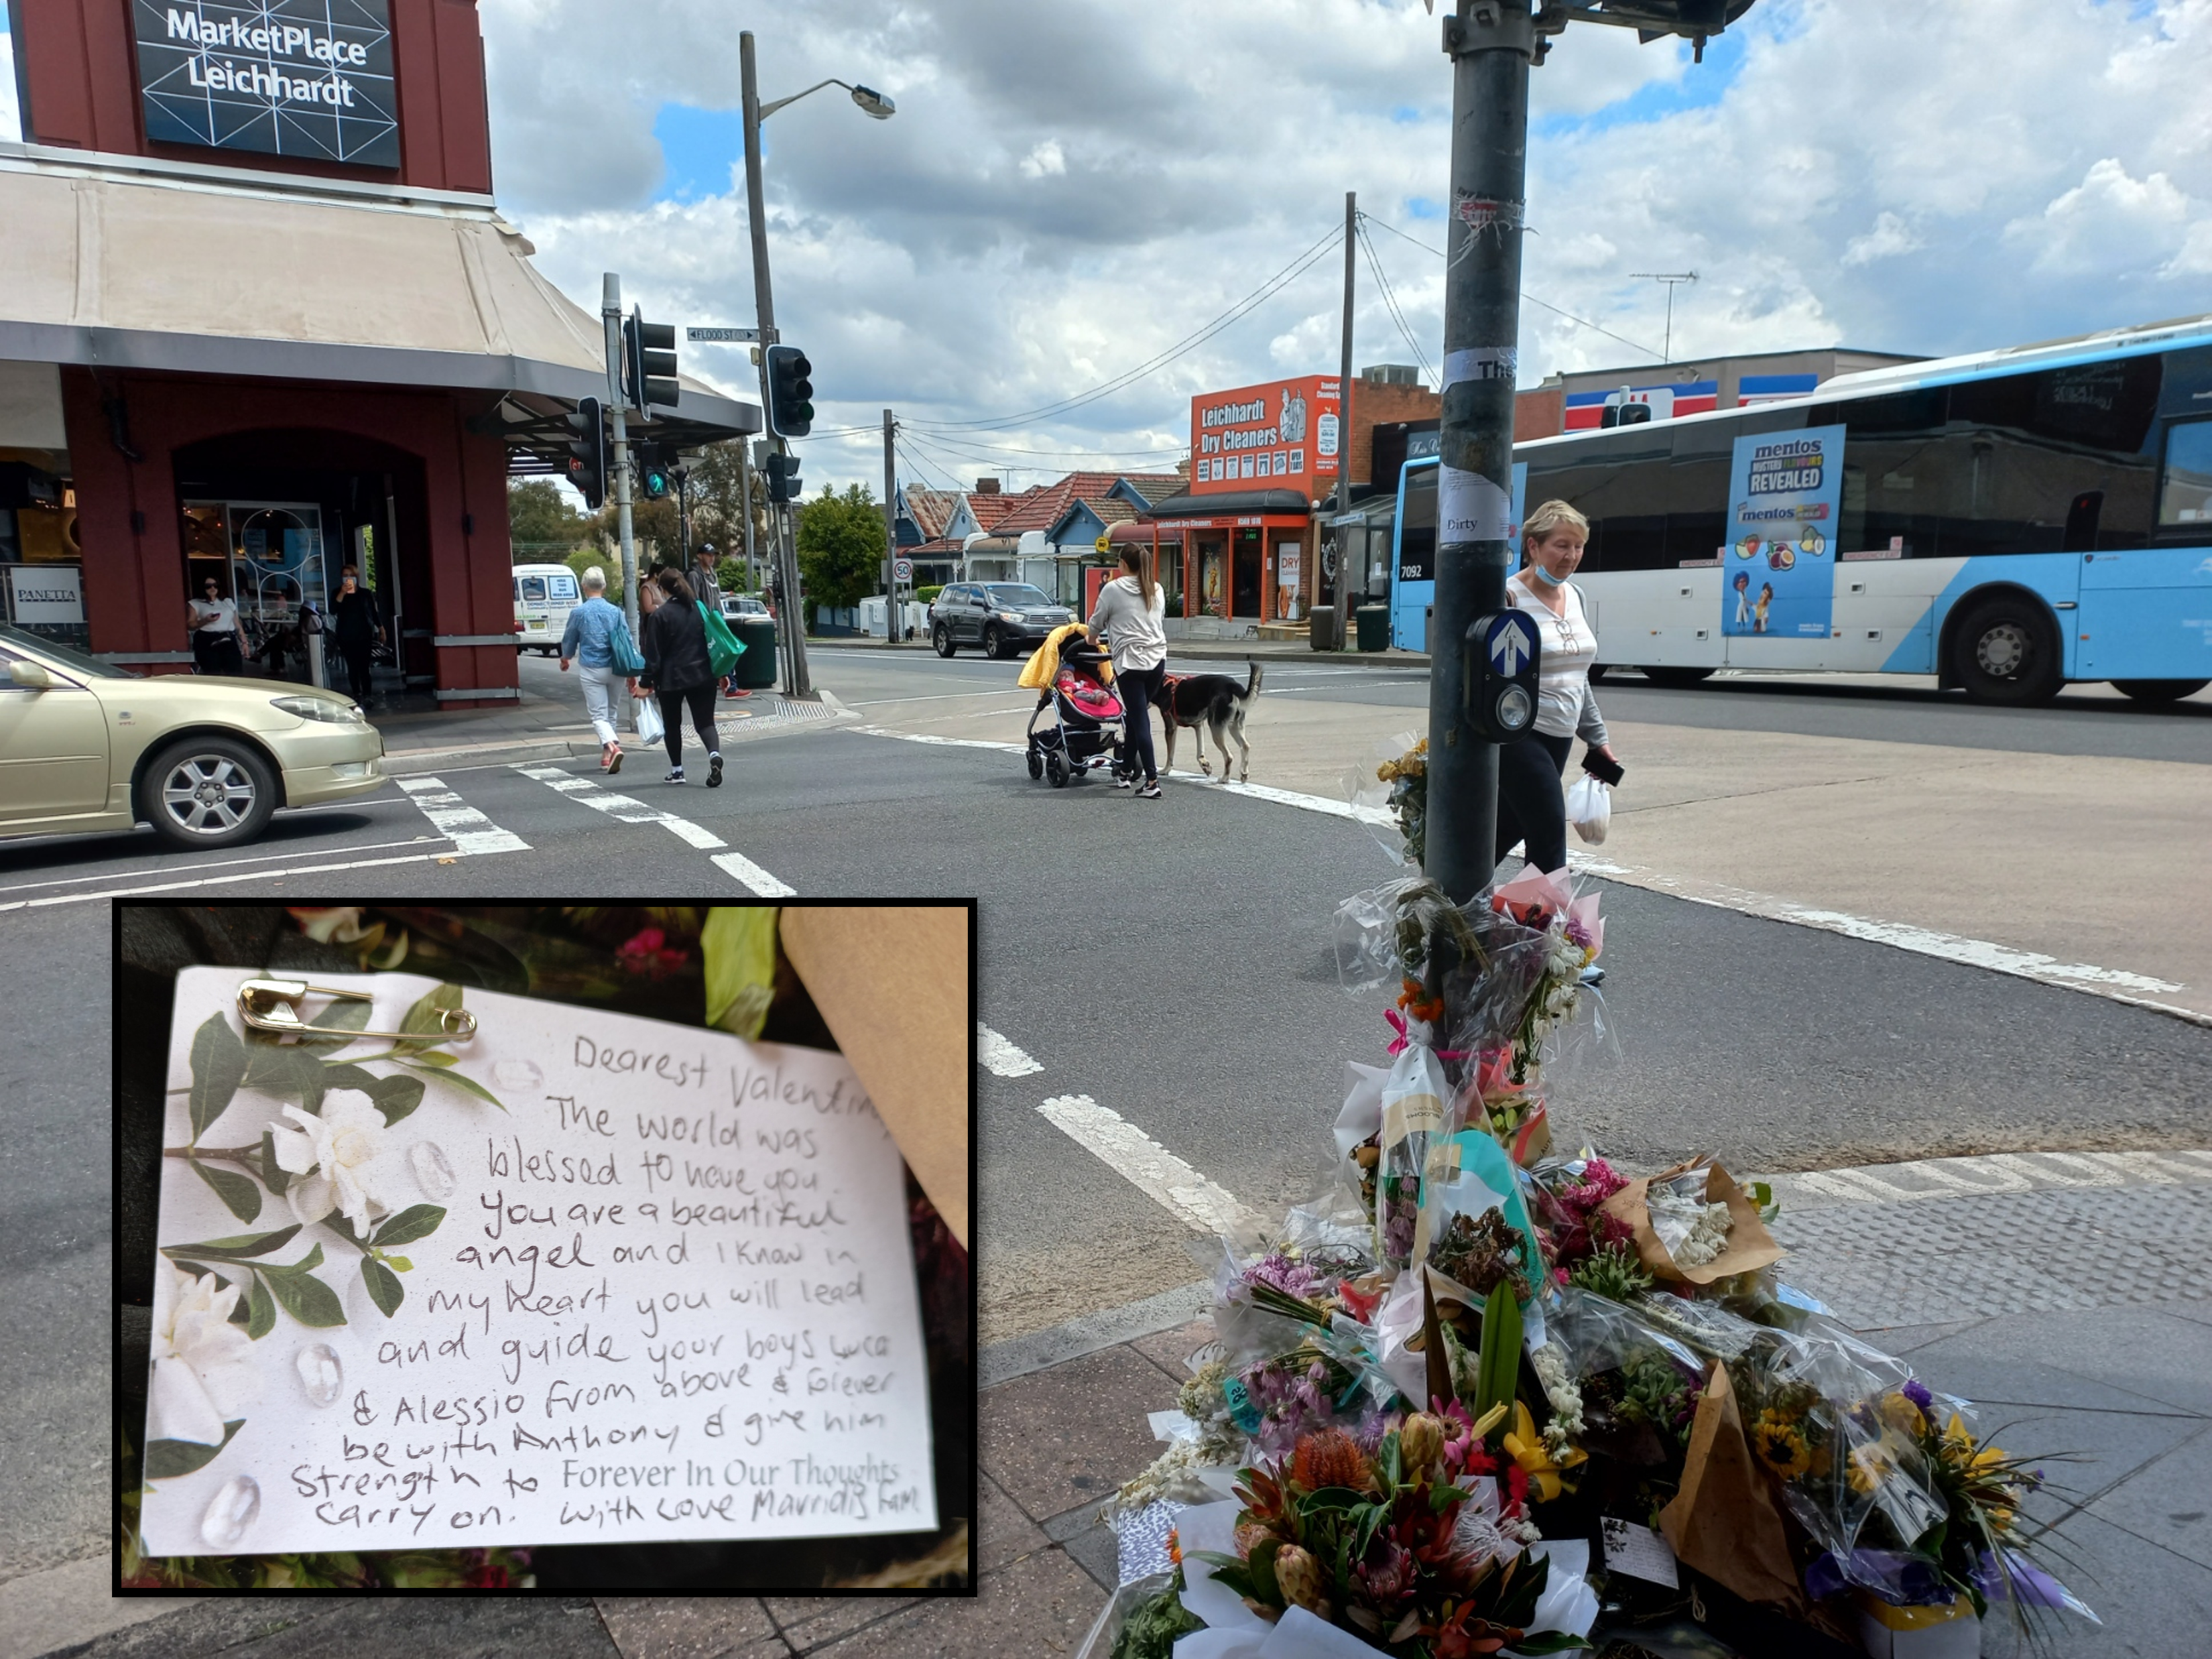 MarketPlace
Leichhardt
FLOOD ST
Leichhardt
Dry Cleaners
Leichhardt Dry Cleaners
DRY
PANETTA
50
The
Dirty
7092
mentos
MYSTERY FLAVOURS
REVEALED
mentos
Dearest Valentin
The world was
blessed to have you.
You are a beautiful
angel and I know in
my heart you will lead
and guide your boys Luca
& Alessio from above & forever
be with Anthony & give him
Strength to Forever In Our Thoughts
carry on. With Love Fam